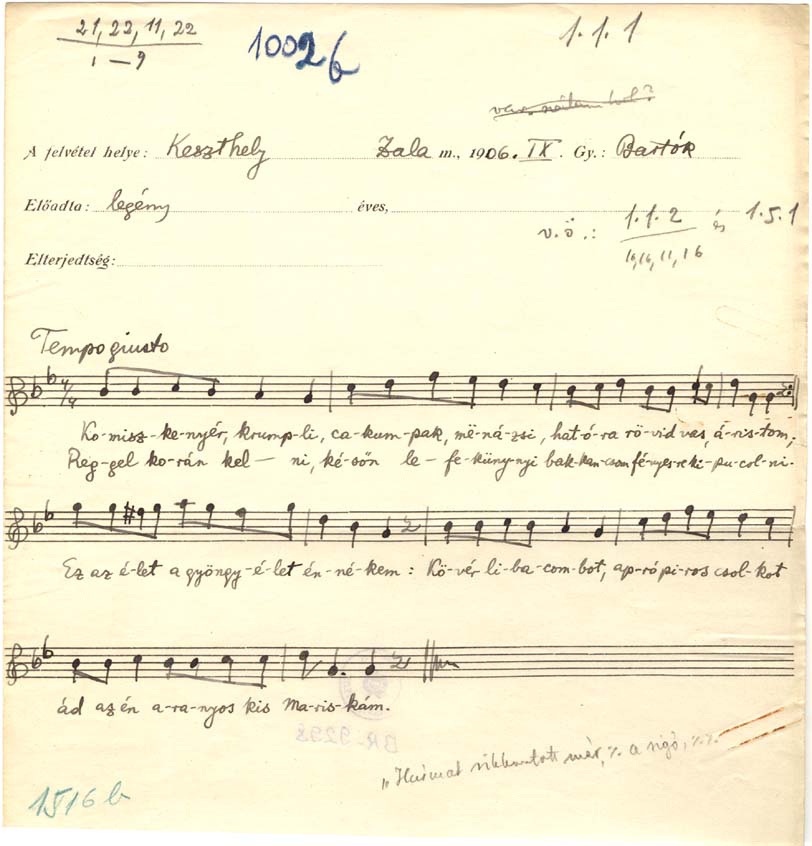 21, 22, 11, 22
1 – 9
1002b
1.1.1
A felvétel helye: Keszthely Zala m., 1906. IX. Gy.: Bartók
Előadta: legény éves,
v.ö.: 1.1.2 és 1.5.1
16,16,11,16
Elterjedtség:
Tempo giusto
4/4
Ko-misz-ke-nyér, krump-li, ca-kum-pak, më-ná-zsi, hat-ó-ra rö-vid vas, á-ris-tom;
Rëg-gel ko-rán kel-ni, ké-sőn le-fe-küny-nyi bak-kan-csom fé-nyes-re ki-pu-col-ni.
Ez az é-let a gyöngy-é-let én-né-kem: Kö-vér li-ba-com-bot, ap-ró pi-ros csol-kot
ád az én a-ra-nyos kis Ma-ris-kám.
BR-9298
a rigó,
1516 b